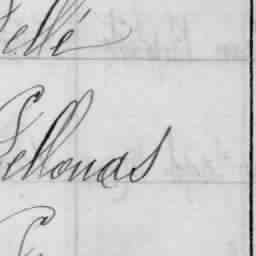 Pellé
Pellouas